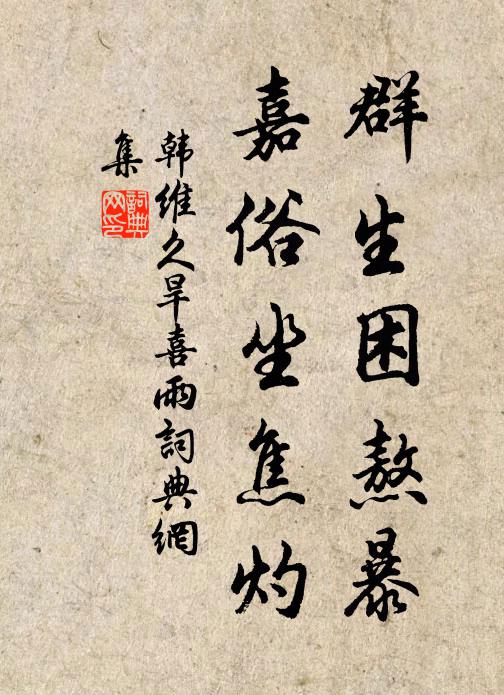 群生困熬暴
嘉俗坐焦灼
韩维久旱喜雨詞典網
集
詞典
网印